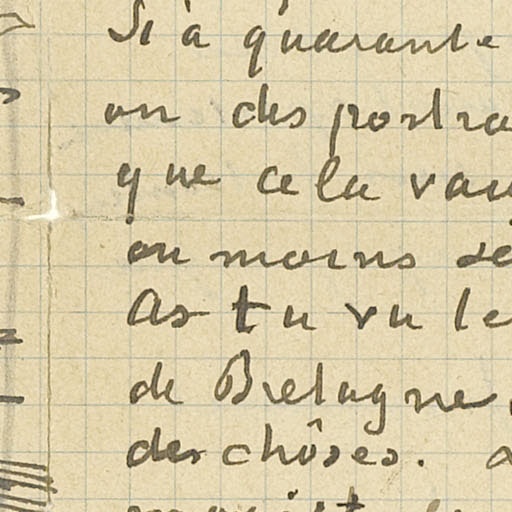 Si à quarante
on des portra
que cela vau
on moins se
As tu vu le
de Bretagne
des chôses.